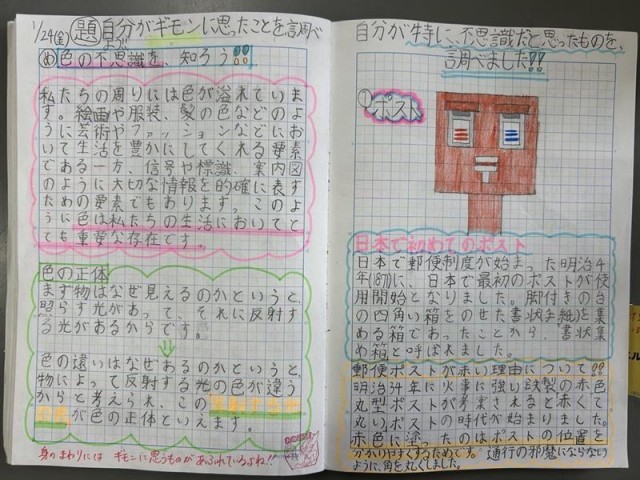 1/24(金) 題 自分がギモンに思ったことを調べよう!!
め 色の不思議を、知ろう!!
私たちの周りには色が溢れていま
す。絵画や服装、髪の色などのよ
うに芸術やファッションなどにお
いて生活を豊かにしてくれる要素
である一方、信号や標識、案内図
のように大切な情報を的確に表す
ための要素でもあります。このよ
うに色は私たちの生活においてと
ても重要な存在です。
色の正体
まず物はなぜ見えるのかというと、
照らす光があって、それに反射す
る光があるからです。
色の違いはなぜあるのかというと、
物によって反射する光の色が違う
からと考えられ、この
が色の正体といえます。
身のまわりには ギモンに思うものがあふれているよね!!
自分が特に、不思議だと思ったものを、
調べました!!
① ポスト
日本で初めてのポスト
日本で郵便制度が始まった明治4
年(1871)に、日本で最初のポストが使
用開始となりました。脚付きの台
の四角い箱をのせた書状(手紙)を集
める箱であったことから、書状集
め箱と呼ばれました。
郵便ポストが赤い理由について!!
明治34年に火事に強い鉄製の赤色
丸型ポストが考案されると赤くて
丸いポストの時代が始まりました。
赤色に塗ったのはポストの位置を
分かりやすくするためです。通行の邪魔にならない
ように、角を丸くしました。